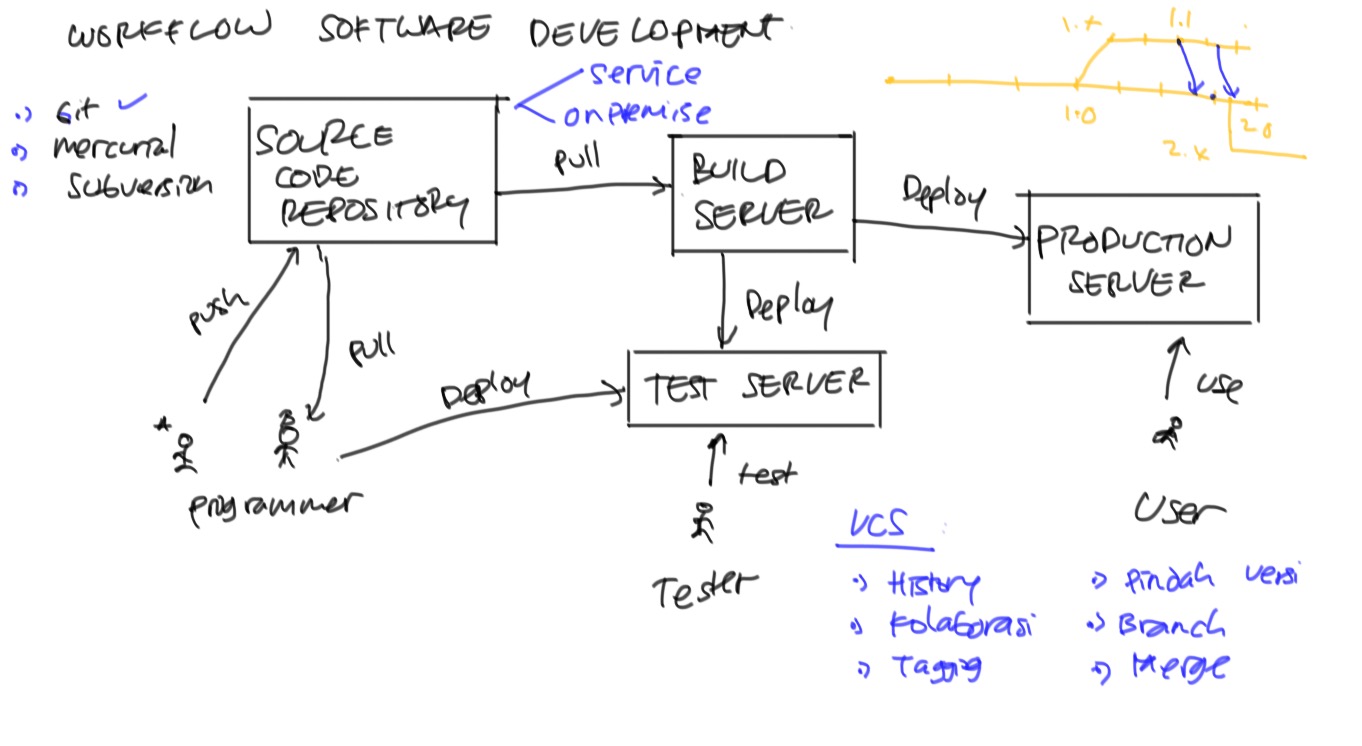 WORKFLOW SOFTWARE DEVELOPMENT
Git
Mercurial
Subversion
service
onpremise
SOURCE
CODE
REPOSITORY
pull
BUILD
SERVER
Deploy
PRODUCTION
SERVER
1.x
1.1
1.0
2.0
2.x
push
pull
Deploy
Deploy
TEST SERVER
use
test
programmer
Tester
User
VCS
History
Kolaborasi
Tagging
Pindah versi
Branch
Merge